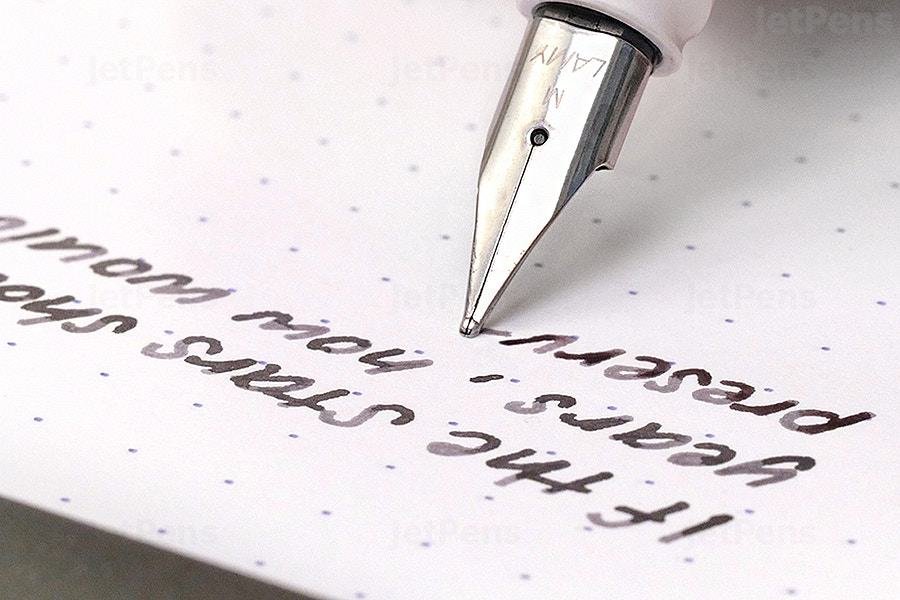 If the stars sho
years, how would
preserv
LAMY
M
JetPens
JetPens
JetPens
JetPens
JetPens
JetPens
JetPens
JetPens
JetPens
JetPens